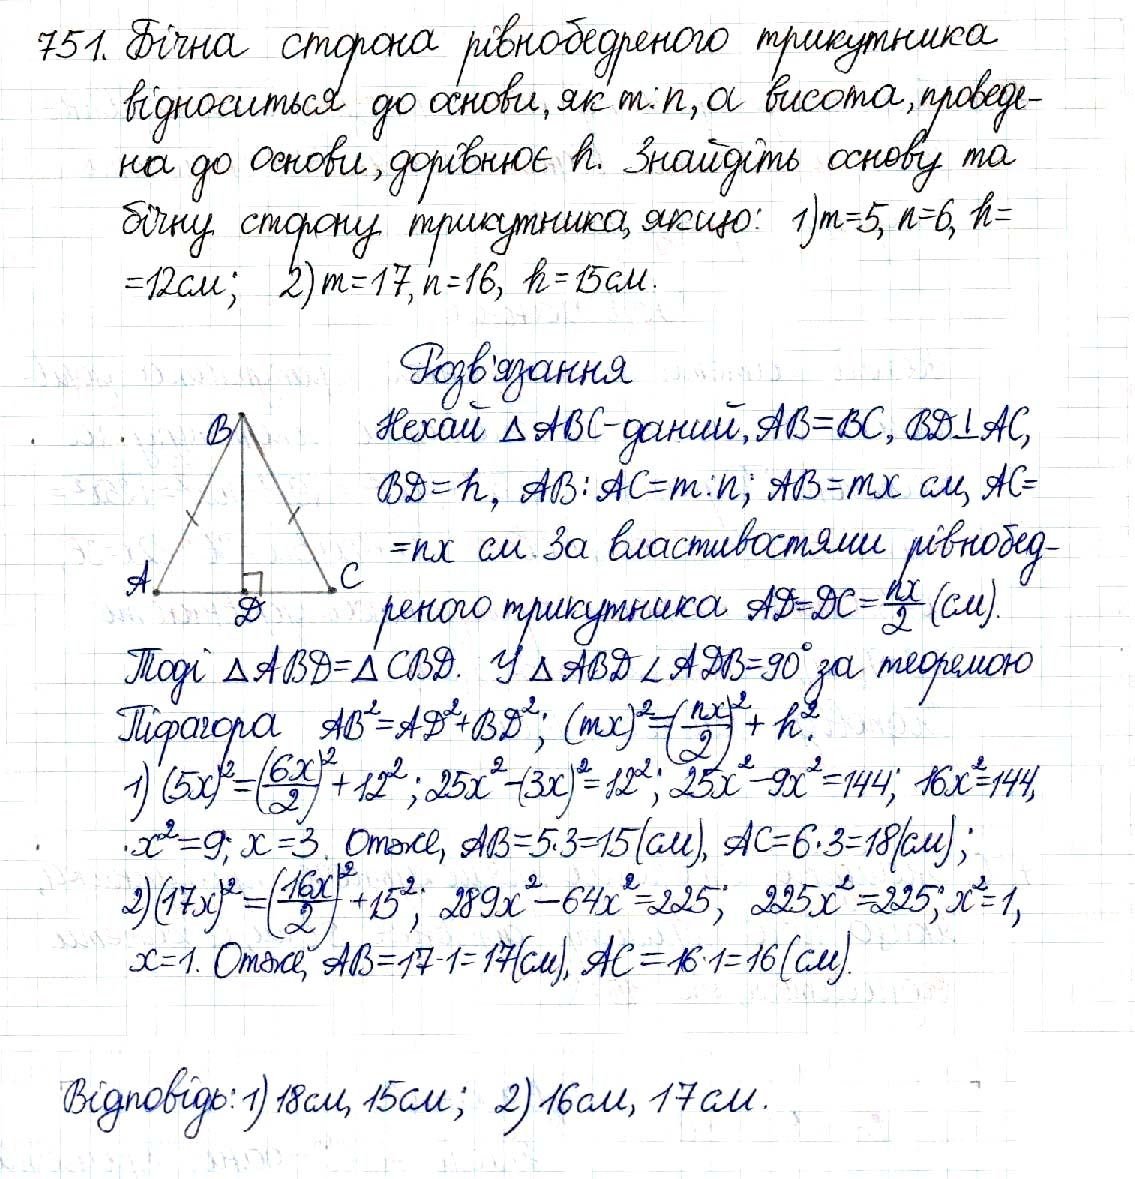 751. Бічна сторона рівнобедреного трикутника
відноситься до основи, як m:n, а висота, проведе-
на до основи, дорівнює h. Знайдіть основу та
бічну сторону трикутника, якщо: 1) m=5, n=6, h=
=12см; 2) m=17, n=16, h=15см.
Розв'язання
Нехай △ABC-даний, AB=BC, BD⊥AC,
BD=h, AB:AC=m:n; AB=mx см, AC=
=nx см. За властивостями рівнобед-
реного трикутника AD=DC=nx/2 (см).
B
A
C
D
Тоді △ABD=△CBD. У △ABD ∠ADB=90° за теоремою
Піфагора AB²=AD²+BD²; (mx)²=(nx/2)²+h².
1) (5x)²=(6x/2)²+12²; 25x²-(3x)²=12²; 25x²-9x²=144; 16x²=144,
x²=9; x=3. Отже, AB=5·3=15(см), AC=6·3=18(см);
2) (17x)²=(16x/2)²+15²; 289x²-64x²=225; 225x²=225; x²=1,
x=1. Отже, AB=17·1=17(см), AC=16·1=16(см).
Відповідь: 1) 18см, 15см; 2) 16см, 17см.